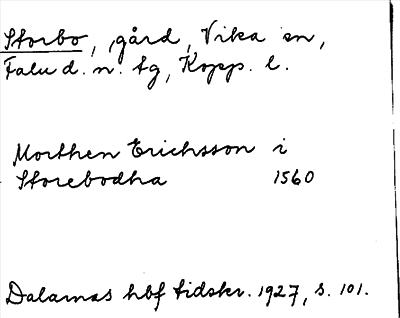 Storbo, gård, Vika sn,
Falu d. n. tg, Kopp. l.
Morthen Erichsson i
Storebodha 1560
Dalarnas hbf tidskr. 1927, s. 101.